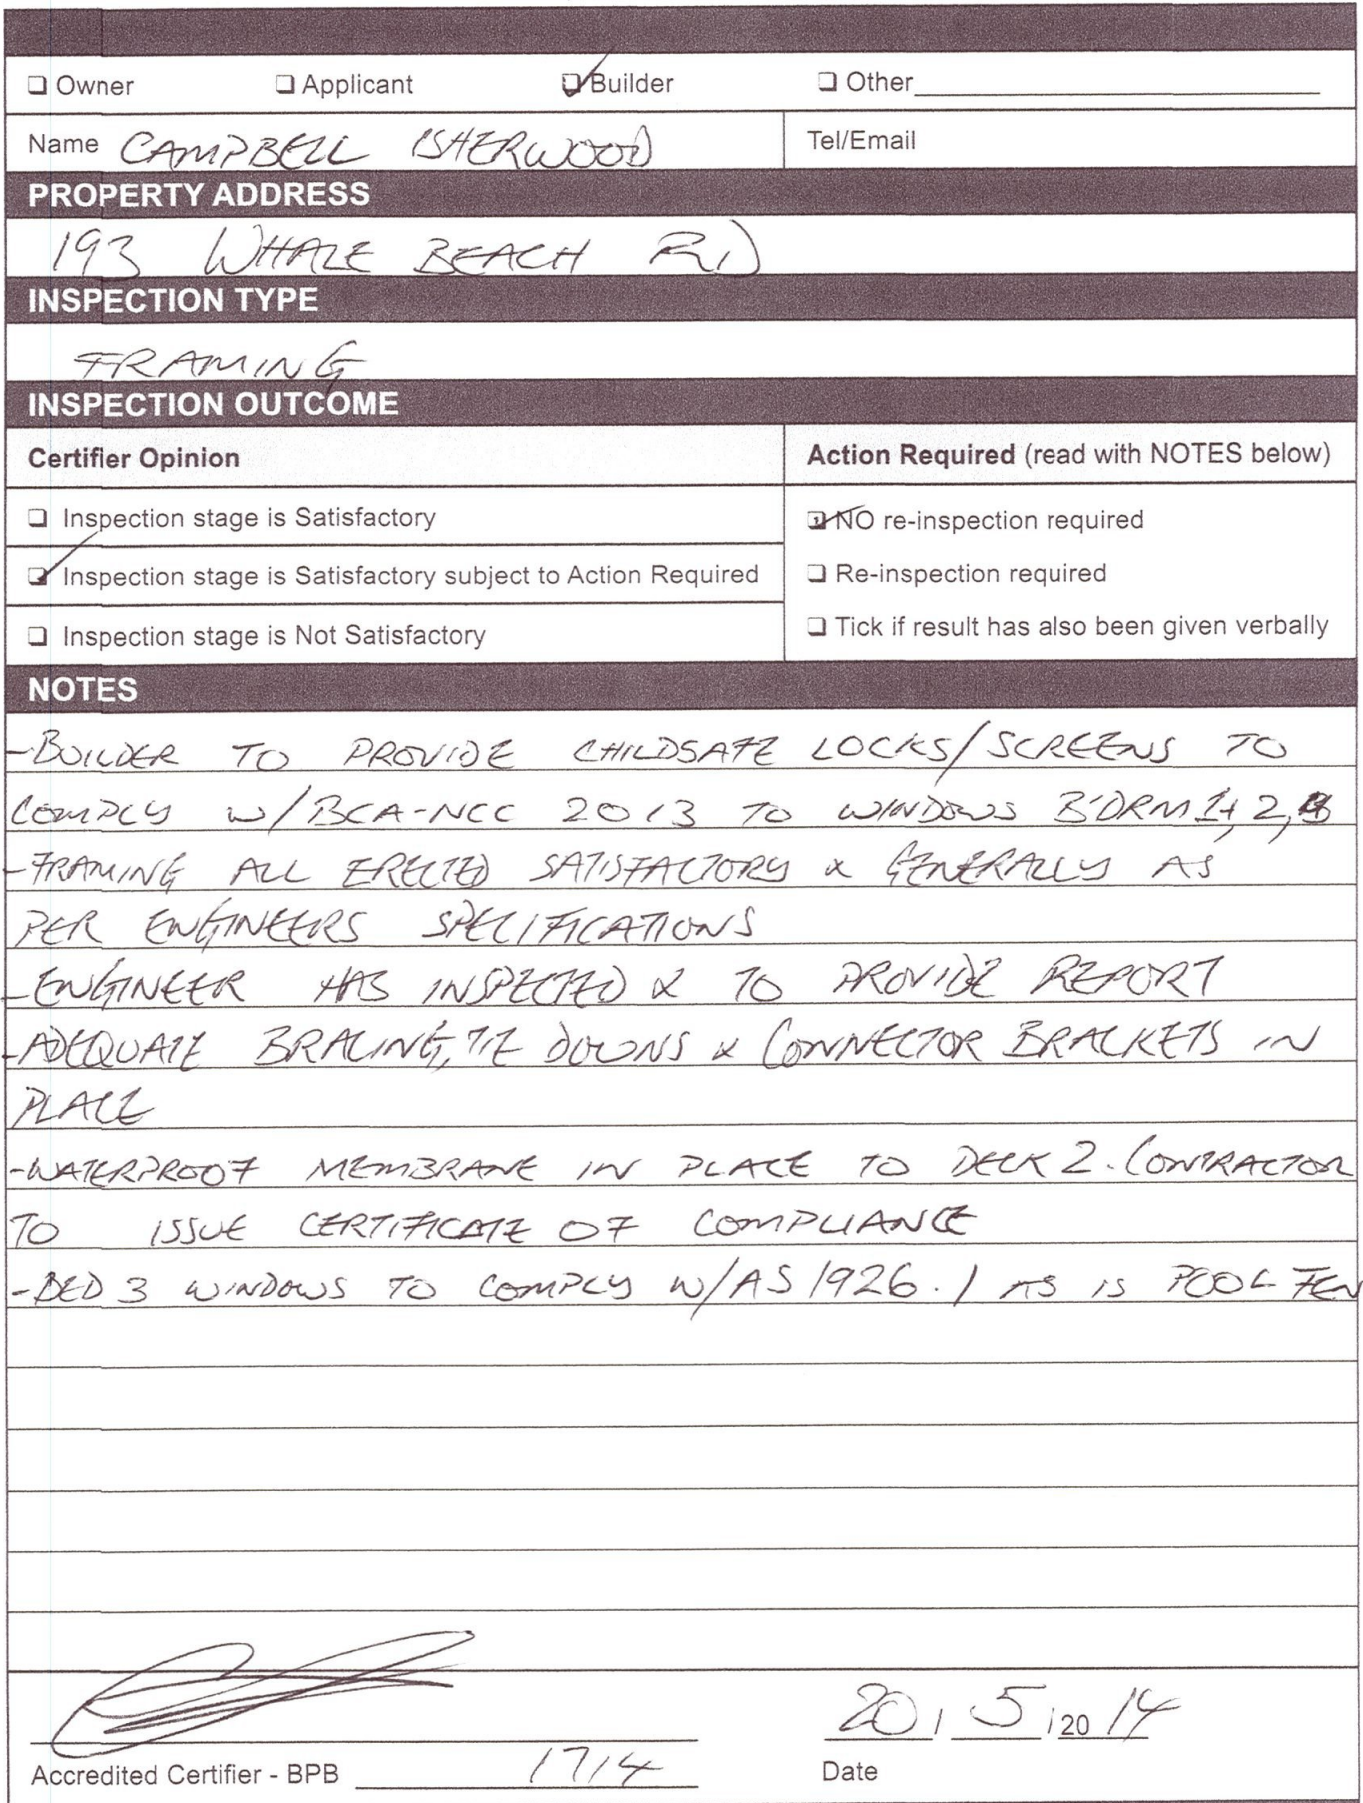 ☐ Owner ☐ Applicant ☑ Builder ☐ Other
Name CAMPBELL ISHERWOOD Tel/Email
PROPERTY ADDRESS
193 WHALE BEACH RD
INSPECTION TYPE
FRAMING
INSPECTION OUTCOME
Certifier Opinion Action Required (read with NOTES below)
☐ Inspection stage is Satisfactory
☑ Inspection stage is Satisfactory subject to Action Required
☐ Inspection stage is Not Satisfactory
☑ NO re-inspection required
☐ Re-inspection required
☐ Tick if result has also been given verbally
NOTES
-BUILDER TO PROVIDE CHILDSAFE LOCKS/SCREENS TO
COMPLY W/BCA-NCC 2013 TO WINDOWS B'DRM 1, 2,
-FRAMING ALL ERECTED SATISFACTORY & GENERALLY AS
PER ENGINEERS SPECIFICATIONS
-ENGINEER HAS INSPECTED & TO PROVIDE REPORT
-ADEQUATE BRACING, TIE DOWNS & CONNECTOR BRACKETS IN
PLACE
-WATERPROOF MEMBRANE IN PLACE TO DECK 2. CONTRACTOR
TO ISSUE CERTIFICATE OF COMPLIANCE
-BED 3 WINDOWS TO COMPLY W/AS 1926.1 AS IS POOL FEN
20/5/2014
Accredited Certifier - BPB 1714 Date